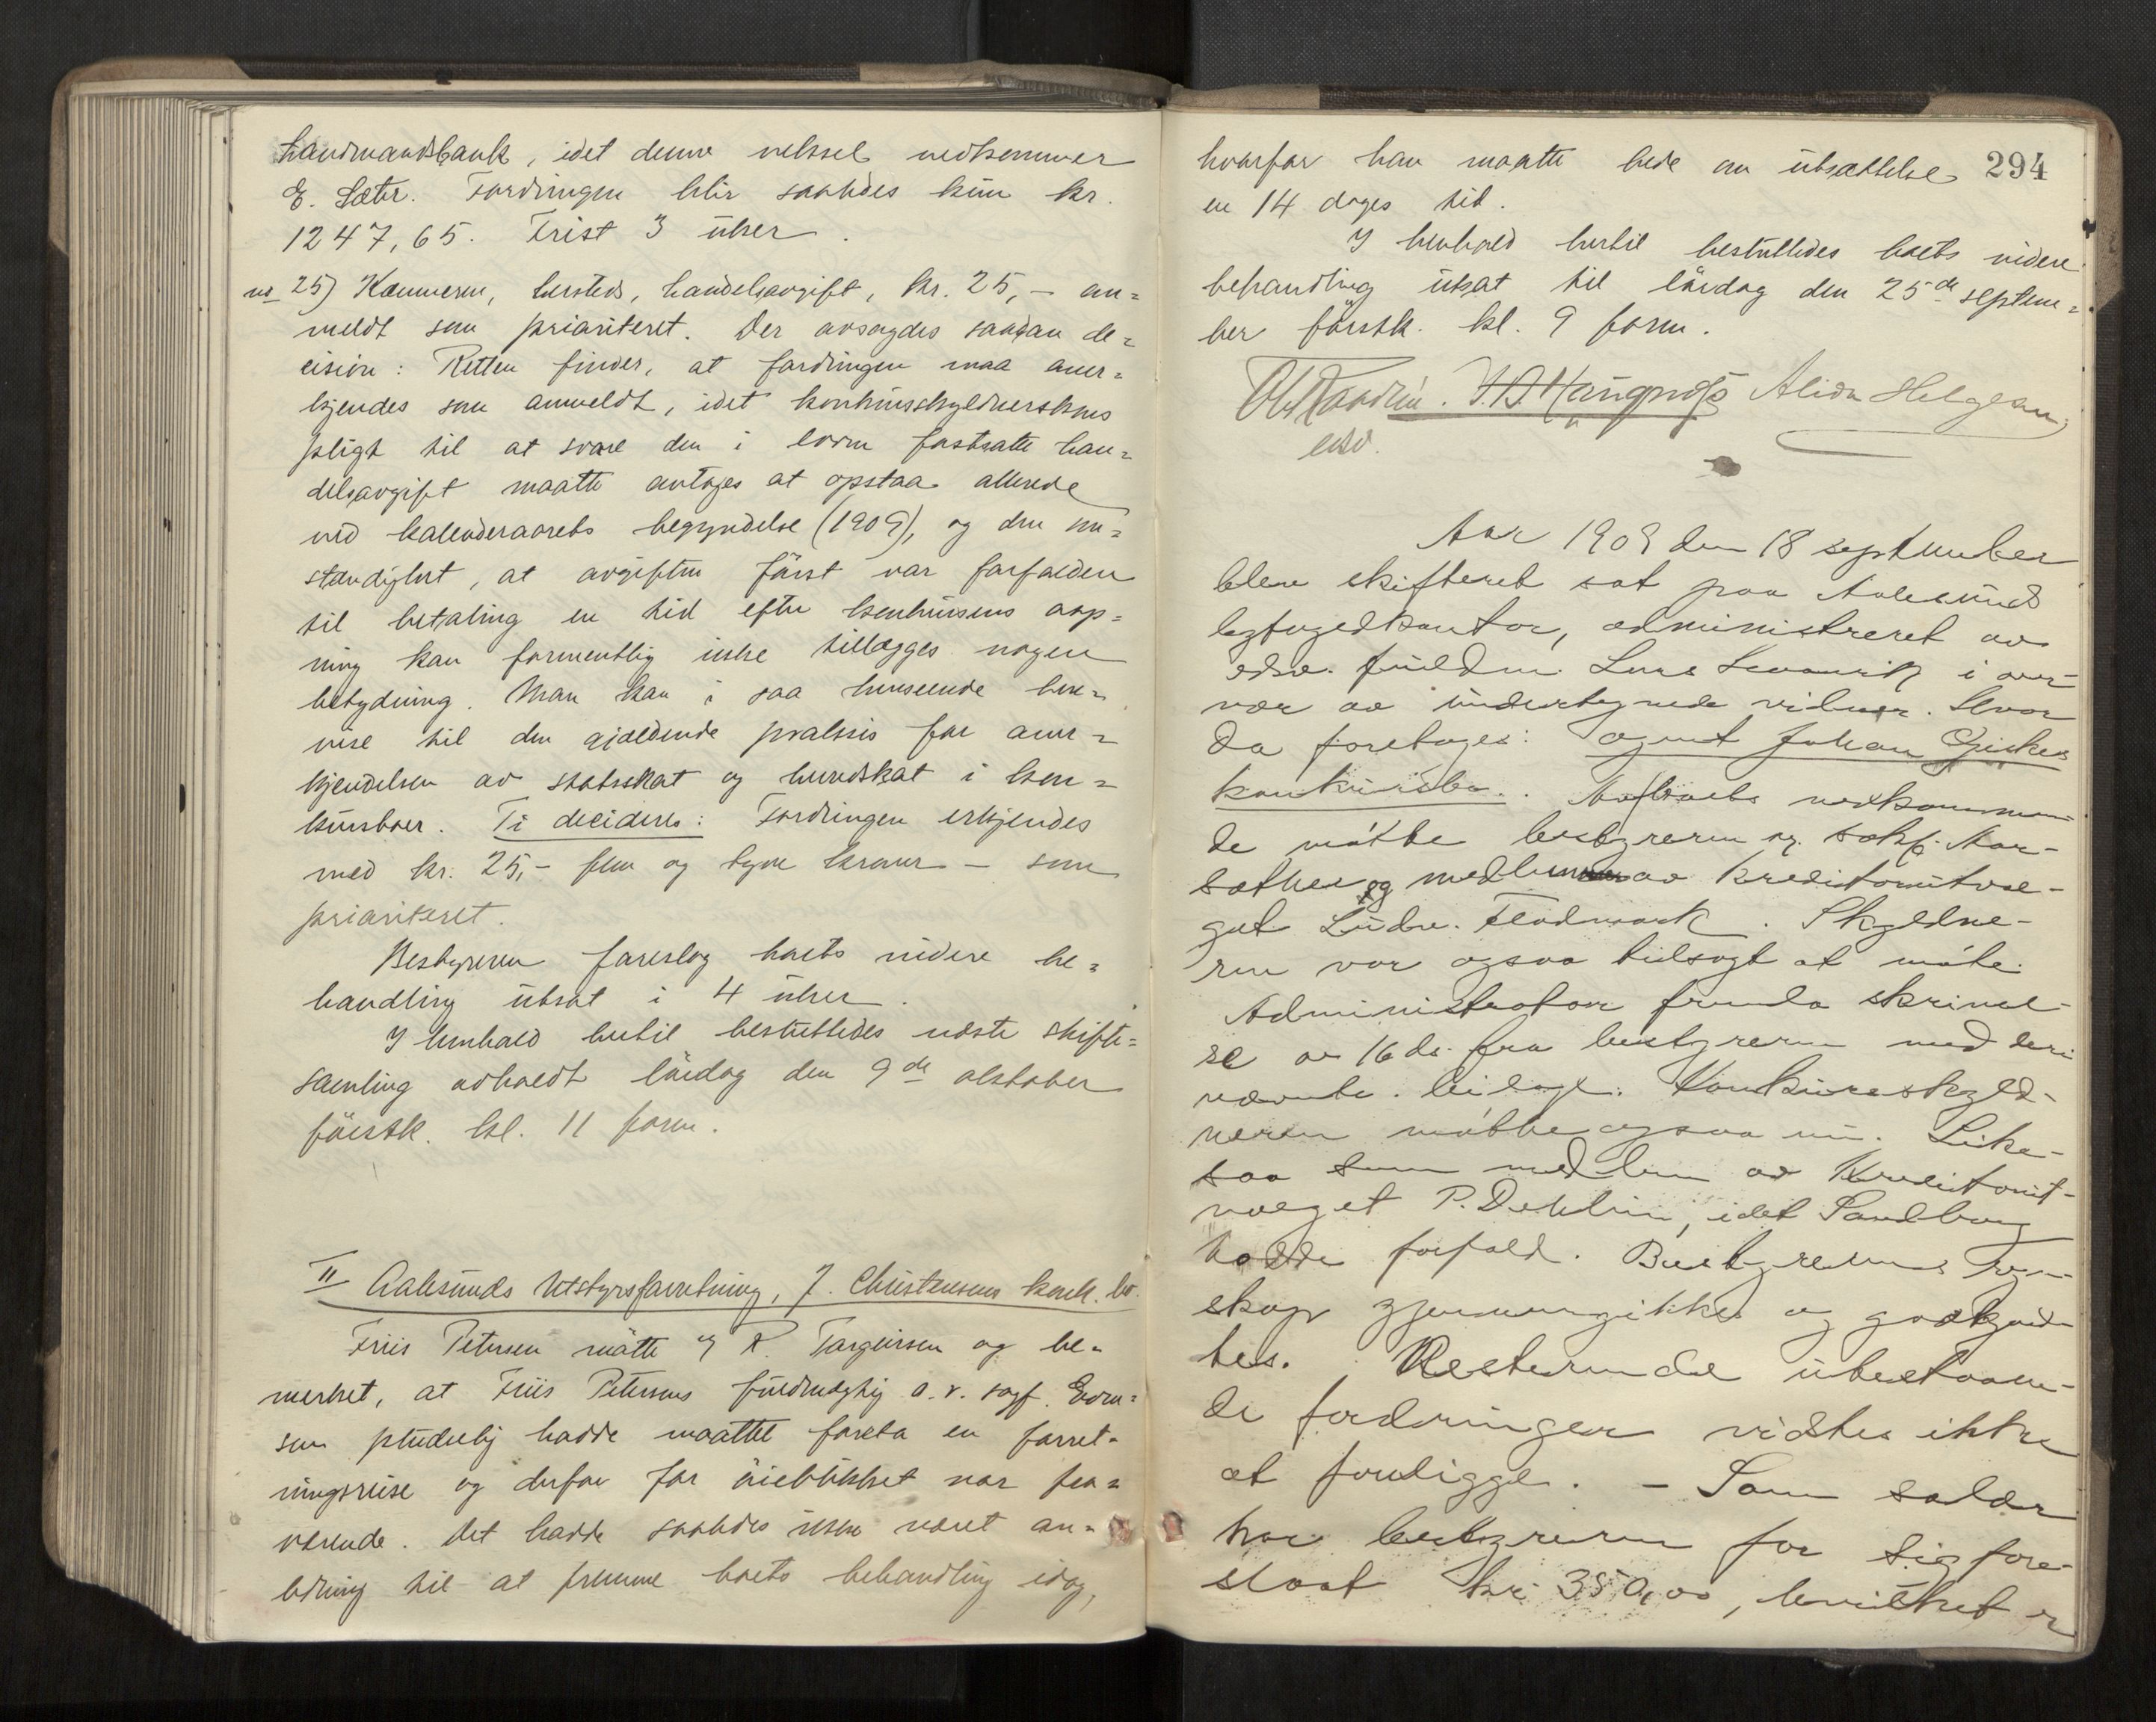 Landmandsbank, idet denne veksel vedkommer
E. Sæter. Fordringen blir saaledes kun kr.
1247,65. Frist 3 uker.
no 25) Kæmneren, hersteds, handelsavgift, kr. 25,- an=
meldt som prioriteret. Der avsagdes saadan de=
cision: Retten finder, at fordringen maa aner=
kjendes som anmeldt, idet konkursskyldnerskens
pligt til at svare den i loven fastsatte han=
delsavgift maatte antages at opstaa allerede
ved kalenderaarets begyndelse (1909), og den om=
stændighet, at avgiften först var forfalden
til betaling en tid efter konkursens aap=
ning kan formentlig ikke tillægges nogen
betydning. Man kan i saa henseende hen=
vise til den gjældende praksis for aner=
kjendelsen av statsskat og hundskat i kon=
kursboer. Ti decideres: Fordringen erkjendes
med kr. 25,- fem og tyve kroner - som
prioriteret.
Bestyreren foreslog boets videre be=
handling utsat i 4 uker.
I henhold hertil besluttedes næste skifte=
samling avholdt lördag den 9de oktober
förstk. kl. 11 form.
II Aalesunds Utstyrsforretning, J. Christensens konk.bo.
Friis Petersen mötte ved R. Torgeirsen og be=
merket, at Friis Petersens fuldmægtig o.r. sagf. Even=
sen pludselig hadde maattet foreta en forret=
ningsreise og derfor for öieblikket var fra=
værende. Det hadde saaledes ikke været an=
ledning til at fremme boets behandling idag,
294
hvorfor han maatte bede om utsættelse
en 14 dages tid.
I henhold hertil besluttedes boets videre
behandling utsat til lördag den 25de septem=
ber förstk. kl. 9 form.
Alida Helgesen
edsv.
Aar 1909 den 18 september
blev skifteret sat paa Aalesunds
byfogedkontor, administreret av
edsv. fuldm. Lars i over-
vær av undertegnede vidner. Hvor
da foretages: agent Johan Gjiskes
konkursbo. Av boets vedkommen-
de mötte bestyreren og sakf. Aar-
sæther og medlem av kreditorutval-
get Ludv. Flodmark. Skyldne-
ren var ogsaa tilsagt at möte.
Administrator fremla skrivel-
se av 16 ds. fra bestyreren med deri
nævnte bilage. Konkursskyld-
neren mötte ogsaa nu. Like-
saa som medlem av Kreditorut-
valget P. Dehlin, idet Sandborg
hadde forfald. Bestyrerens regn-
skap gjennemgikkes og godkjend-
tes. Resterende utestaaen-
de fordringer vistes ikke
at foreligge. - Som salær
har bestyreren for sig fore-
slaat kr. 350,00, hvilket er